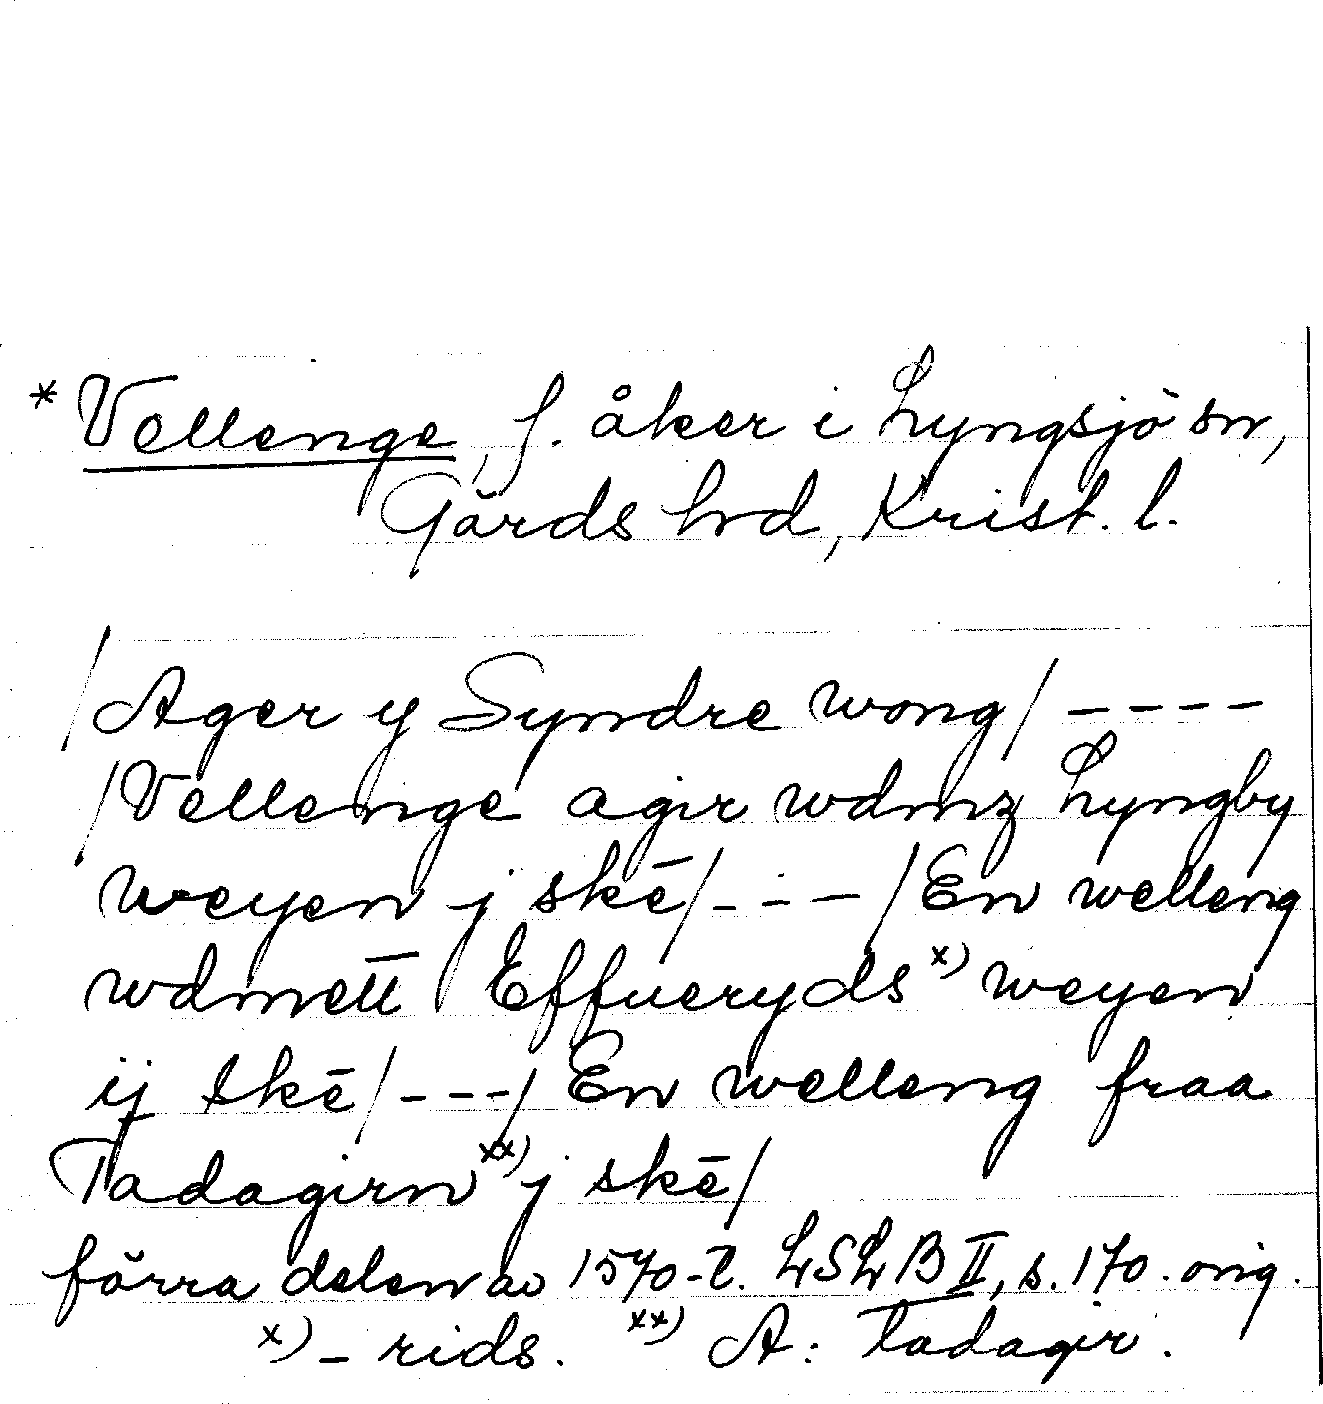 * Vellenge, f. åker i Lyngsjö sn,
Gärds hrd, Krist. l.
/Ager y Syndre wong/ ----
/Vellenge agir wdmz Lyngby
weyen j skē/---/En welleng
wdmett̄ Effueryds x) weyen
ij skē/---/ En welleng fraa
Tadagirn xx) j skē/
förra delen av 1570-t. LSLB II, s. 170. orig.
x) – rids. xx) A: Tadagir.